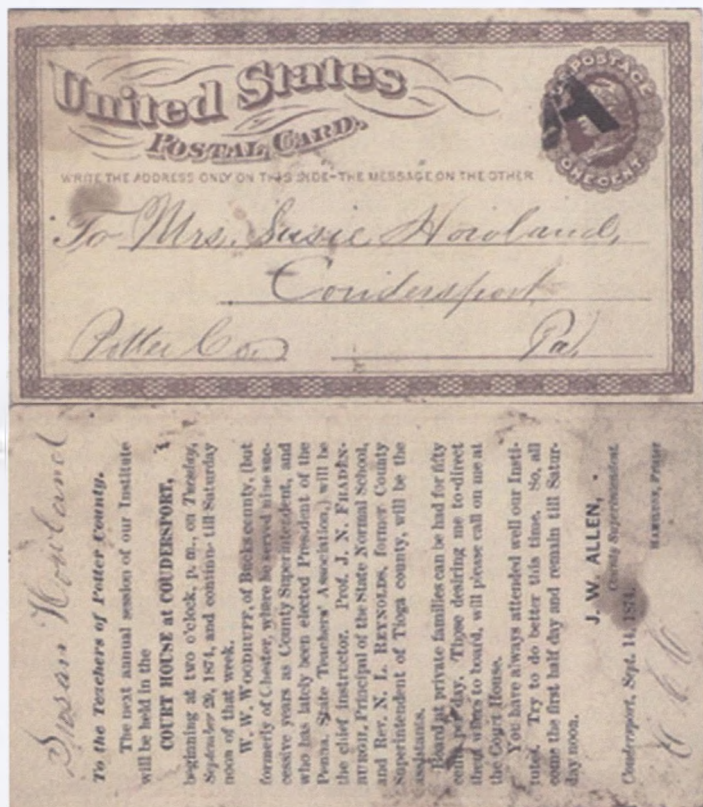 United States
POSTAL CARD.
U.S. POSTAGE
ONE CENT
WRITE THE ADDRESS ONLY ON THIS SIDE-THE MESSAGE ON THE OTHER
To Mrs. Susie Howland,
Coudersport
Potter Co. Pa.
Susan Howland
To the Teachers of Potter County.
The next annual session of our Institute
will be held in the
COURT HOUSE at COUDERSPORT,
beginning at two o'clock, p. m., on Tuesday,
September 29, 1874, and continue till Saturday
noon of that week.
W. W. WOODRUFF, of Bucks county, (but
formerly of Chester, where he served nine suc-
cessive years as County Superintendent, and
who has lately been elected President of the
Penna. State Teachers' Association,) will be
the chief instructor. Prof. J. N. FRADEN-
BURGH, Principal of the State Normal School,
and Rev. N. L. REYNOLDS, former County
Superintendent of Tioga county, will be the
assistants.
Board at private families can be had for fifty
cents per day. Those desiring me to direct
them where to board, will please call on me at
the Court House.
You have always attended well our Insti-
tutes. Try to do better this time. So, all
come the first half day and remain till Satur-
day noon.
J. W. ALLEN,
County Superintendent.
Coudersport, Sept. 14, 1874.